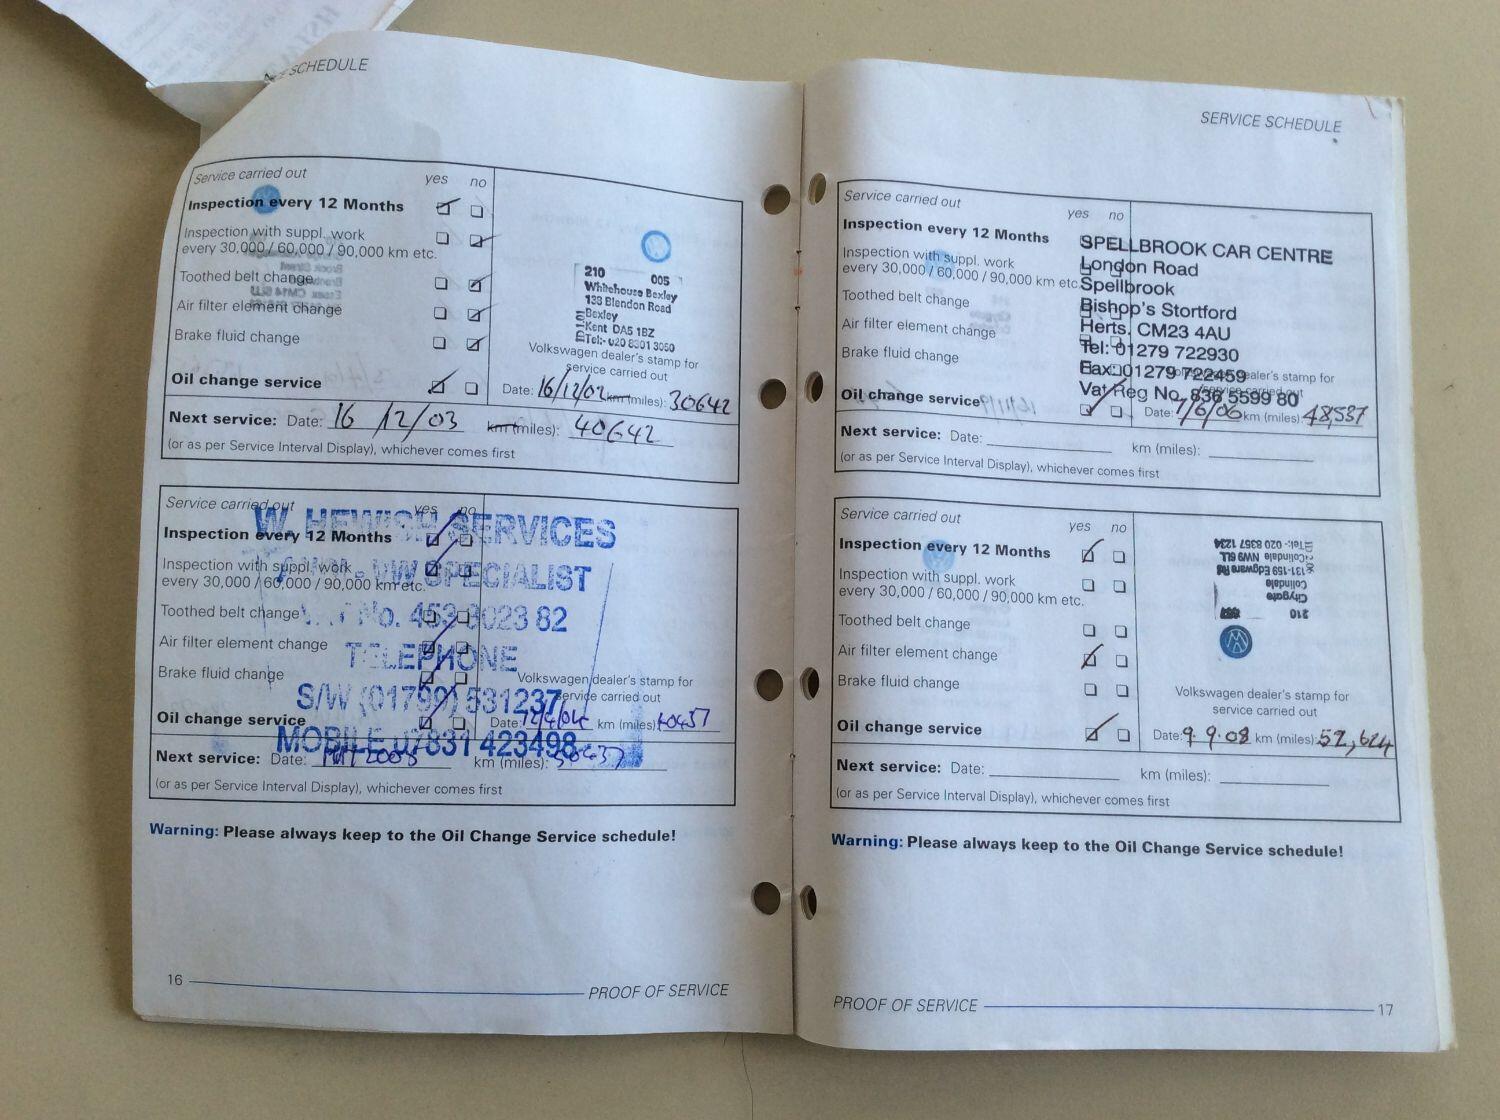 SCHEDULE
Service carried out
yes no
Inspection every 12 Months
Inspection with suppl. work
every 30,000 / 60,000 / 90,000 km etc.
Toothed belt change
Air filter element change
Brake fluid change
Oil change service
210 005
Whitehouse Bexley
133 Blendon Road
Bexley
Kent DA5 1BZ
Tel:- 020 8301 3060
Volkswagen dealer's stamp for
service carried out
Date: 16/12/02 km (miles): 30642
Next service: Date: 16/12/03 km (miles): 40642
(or as per Service Interval Display), whichever comes first
Service carried out
yes no
Inspection every 12 Months
Inspection with suppl. work
every 30,000 / 60,000 / 90,000 km etc.
Toothed belt change
Air filter element change
Brake fluid change
Oil change service
W. HEWISH SERVICES
VW SPECIALIST
No. 453 8023 82
TELEPHONE
S/W (01799) 531237
MOBILE 07831 423498
Volkswagen dealer's stamp for
service carried out
Date: km (miles):
Next service: Date: km (miles):
(or as per Service Interval Display), whichever comes first
Warning: Please always keep to the Oil Change Service schedule!
16
PROOF OF SERVICE
SERVICE SCHEDULE
Service carried out
yes no
Inspection every 12 Months
Inspection with suppl. work
every 30,000 / 60,000 / 90,000 km etc.
Toothed belt change
Air filter element change
Brake fluid change
Oil change service
SPELLBROOK CAR CENTRE
London Road
Spellbrook
Bishop's Stortford
Herts. CM23 4AU
Tel: 01279 722930
Fax: 01279 722459
Vat Reg No. 836 5599 80
dealer's stamp for
service carried out
Date: 7/6/06 km (miles): 48,537
Next service: Date: km (miles):
(or as per Service Interval Display), whichever comes first
Service carried out
yes no
Inspection every 12 Months
Inspection with suppl. work
every 30,000 / 60,000 / 90,000 km etc.
Toothed belt change
Air filter element change
Brake fluid change
Oil change service
210
Citygate
Colindale
131-159 Edgware Rd
Colindale NW9 6LL
Tel:- 020 8357 1234
Volkswagen dealer's stamp for
service carried out
Date: 9.9.08 km (miles): 52,624
Next service: Date: km (miles):
(or as per Service Interval Display), whichever comes first
Warning: Please always keep to the Oil Change Service schedule!
PROOF OF SERVICE
17